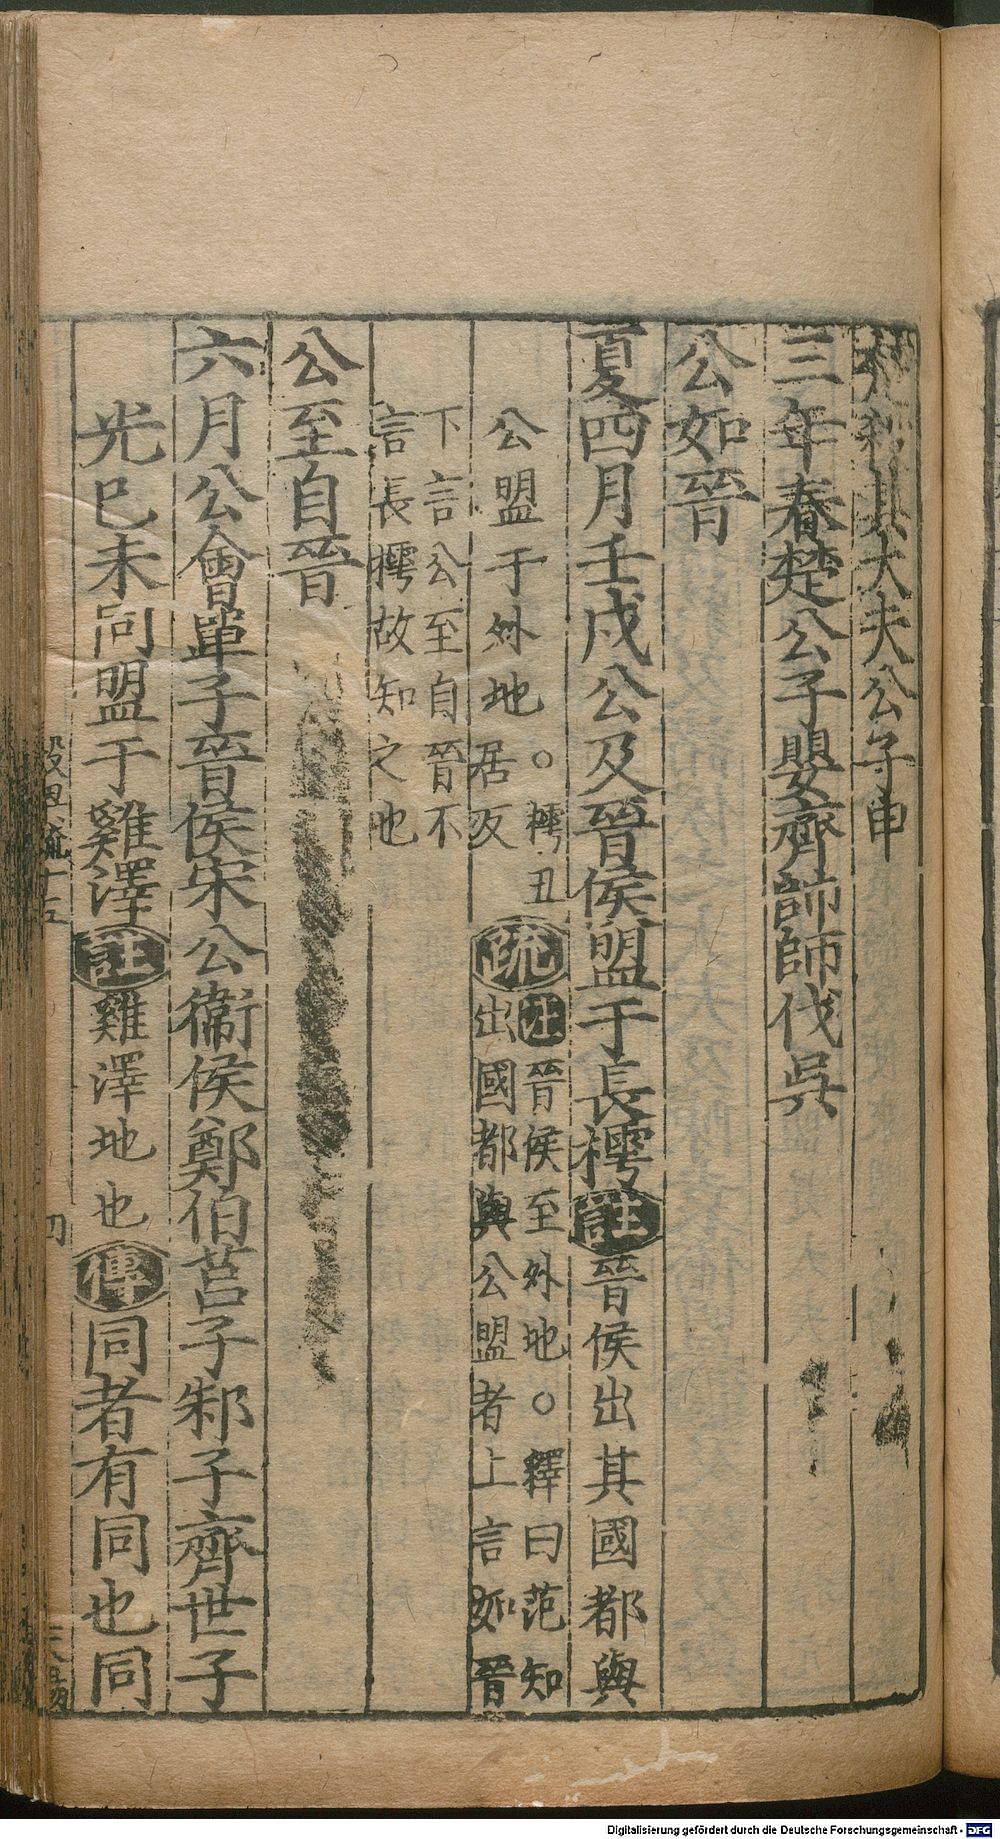 楚殺其大夫公子申
三年春楚公子嬰齊帥師伐吳
公如晉
夏四月壬戌公及晉侯盟于長樗註晉侯出其國都與
公盟于外地○樗丑居反疏註晉侯至外地○釋曰范知出國都與公盟者上言如晉
下言公至自晉不言長樗故知之也
公至自晉
六月公會單子晉侯宋公衞侯鄭伯莒子邾子齊世子
光巳未同盟于雞澤註雞澤地也傳同者有同也同
Digitalisierung gefördert durch die Deutsche Forschungsgemeinschaft - DFG